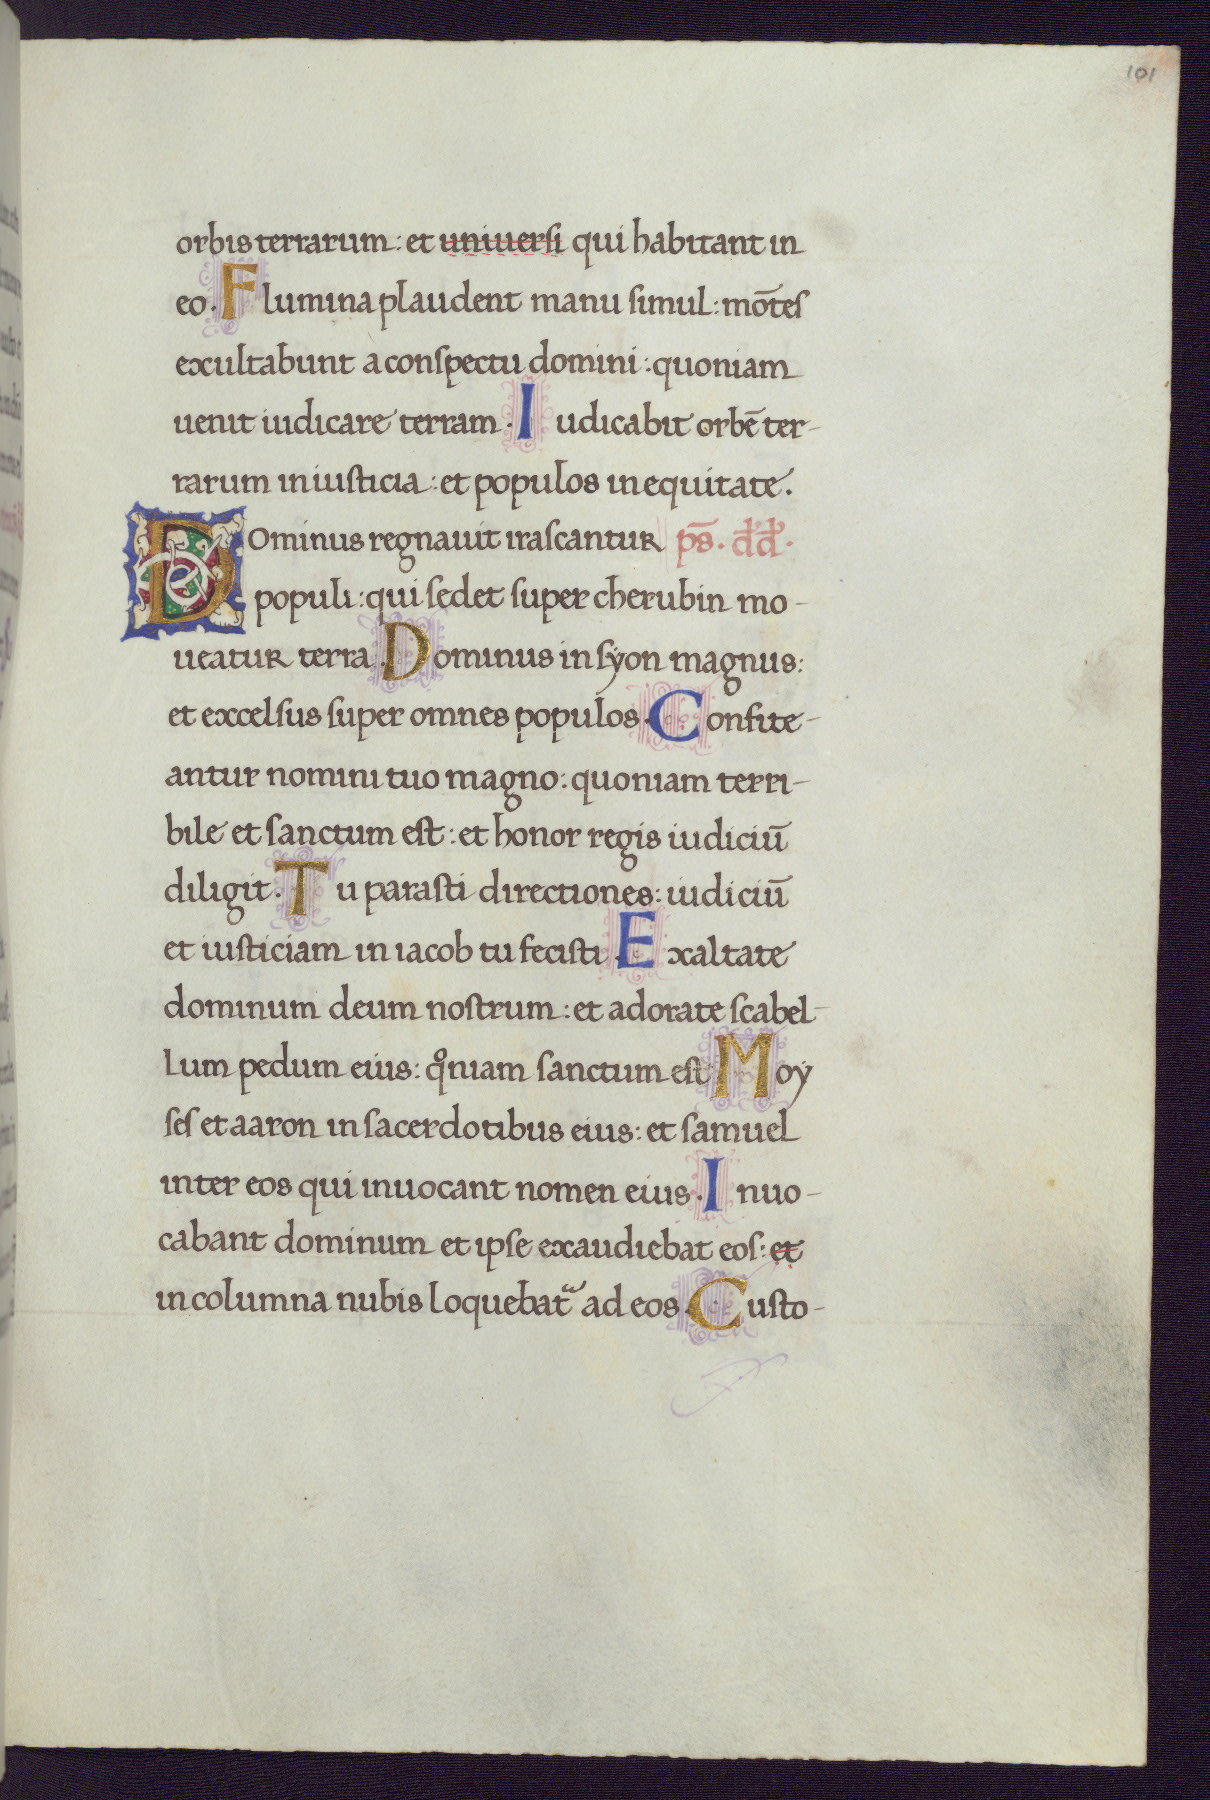 101
orbis terrarum: et uniuersi qui habitant in
eo. Flumina plaudent manu simul: mōtes
exultabunt a conspectu domini: quoniam
uenit iudicare terram. Iudicabit orbē ter-
rarum in iusticia: et populos in equitate.
Dominus regnauit irascantur ps̄. dd.
populi: qui sedet super cherubin mo-
ueatur terra. Dominus in syon magnus:
et excelsus super omnes populos. Confite-
antur nomini tuo magno: quoniam terri-
bile et sanctum est: et honor regis iudiciū
diligit. Tu parasti directiones: iudiciū
et iusticiam in iacob tu fecisti. Exaltate
dominum deum nostrum: et adorate scabel-
lum pedum eius: qͦniam sanctum est. Moy
ses et aaron in sacerdotibus eius: et samuel
inter eos qui inuocant nomen eius. Inuo-
cabant dominum et ipse exaudiebat eos: et
in columna nubis loquebat᷑ ad eos. Custo-